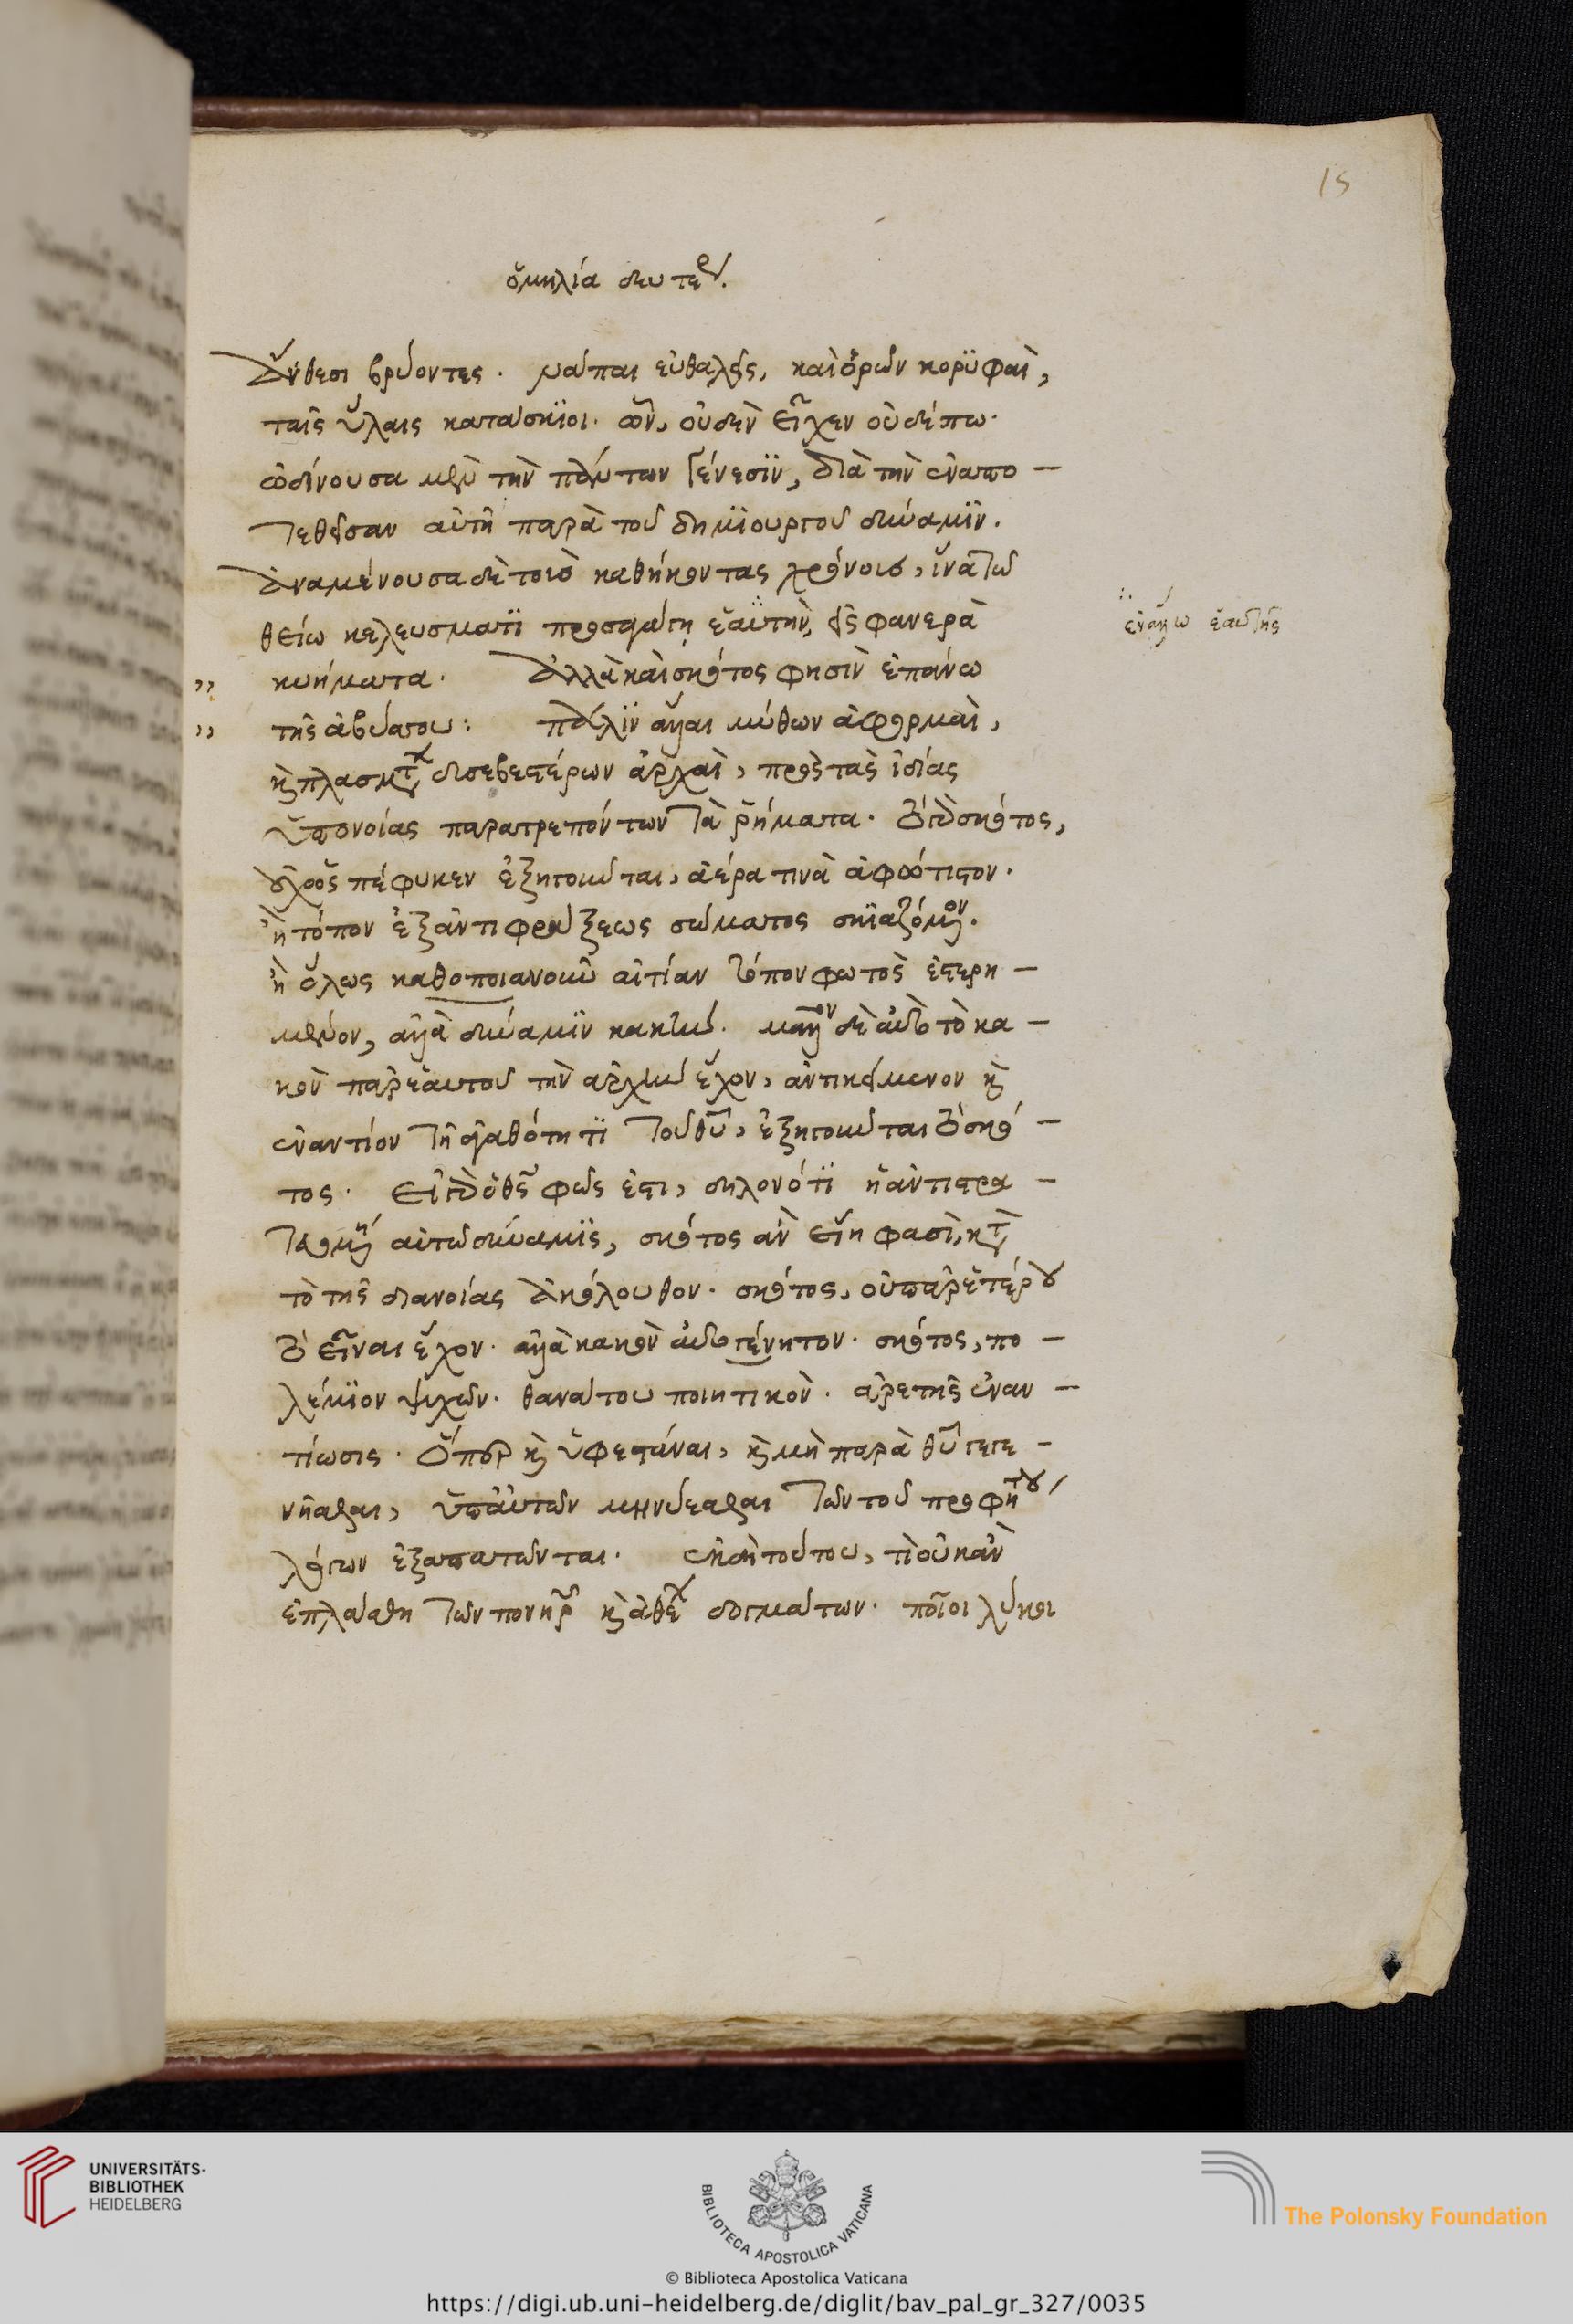 15
ὁμηλία δευτέρ
ἄνθεσι βρύοντες. νάπαι εὐθαλεῖς, καὶ ὀρῶν κορϋφαὶ,
ταῖς ὕλαις κατάσκϊοι. ὧν, οὐδὲν εἶχεν οὐδέπω.
ὠδίνουσα μὲν τὴν πάντων γένεσϊν, διὰ τὴν ἐναπο –
τεθεῖσαν αὐτῆ παρὰ τοῦ δημϊουργοῦ δύναμϊν.
ἀναμένουσα δὲ τοὺσ καθήκοντας χρόνουσ, ἵνα τῶ
θείω κελευσματϊ προσαγάγη ἑαϋτὴν, εἰς φανερὰ
ἐναλλω ἑαυτῆς
,, κυήματα. Ἀλλὰ καὶ σκότος φησὶν ἐπάνω
,, τῆς ἀβύσσου: πάλϊν ἄλλαι μύθων ἀφορμαὶ,
κ πλασμτ δυσεβεστέρων ἀρχαὶ, πρὸς τὰς ἰδίας
ὑπονοίας παρατρεπόντων τὰ ῥήματα. τὸ γὰρ σκότος,
οὐχ ὡς πέφυκεν ἐξηγοῦνται, ἀέρα τινὰ ἀφώτιστον.
ἢ τόπον ἐξ ἀντιφράξεως σώματος σκϊαζόμενον.
ἢ ὅλως καθοποιανοῦν αἰτίαν τόπον φωτὸς ἐστερη –
μένον, ἀλλὰ δύναμϊν κακὴν. μᾶλλον δὲ αὐτὸ τὸ κα –
κὸν παρ' ἑαυτοῦ τὴν ἀρχὴν ἔχον, ἀντικείμενον κ
ἐναντίον τῆ ἀγαθότητϊ τοῦ θῦ, ἐξηγοῦνται τὸ σκό –
τος. εἰ γὰρ ὁ θς φῶς ἐστι, δηλονότϊ ἡ ἀντιστρα –
τευομένη αὐτῶ δύναμϊς, σκότος ἂν εἴη φασὶ, κτ
τὸ τῆς διανοίας ἀκόλουθον. σκότος, οὐ παρ' ἑτέρου
τὸ εἶναι ἔχον. ἀλλὰ κακὸν αὐτογένητον. σκότος, πο –
λέμϊον ψυχῶν. θανάτου ποιητικὸν. ἀρετῆς ἐναν –
τίωσις. ὅπερ κ ὑφεστάναι, κ μὴ παρὰ θῦ γεγε –
νῆσθαι, ὑπ' αὐτῶν μηνύεσθαι τῶν τοῦ προφήτου
λόγων ἐξαπατῶνται. ἐκ δὴ τούτου, τί οὐκ ἂν
ἐπλάσθη τῶν πονηρ κ ἀθε δογμάτων. ποῖοι λύκοι
UNIVERSITÄTS-
BIBLIOTHEK
HEIDELBERG
BIBLIOTECA APOSTOLICA VATICANA
The Polonsky Foundation
© Biblioteca Apostolica Vaticana
https://digi.ub.uni-heidelberg.de/diglit/bav_pal_gr_327/0035